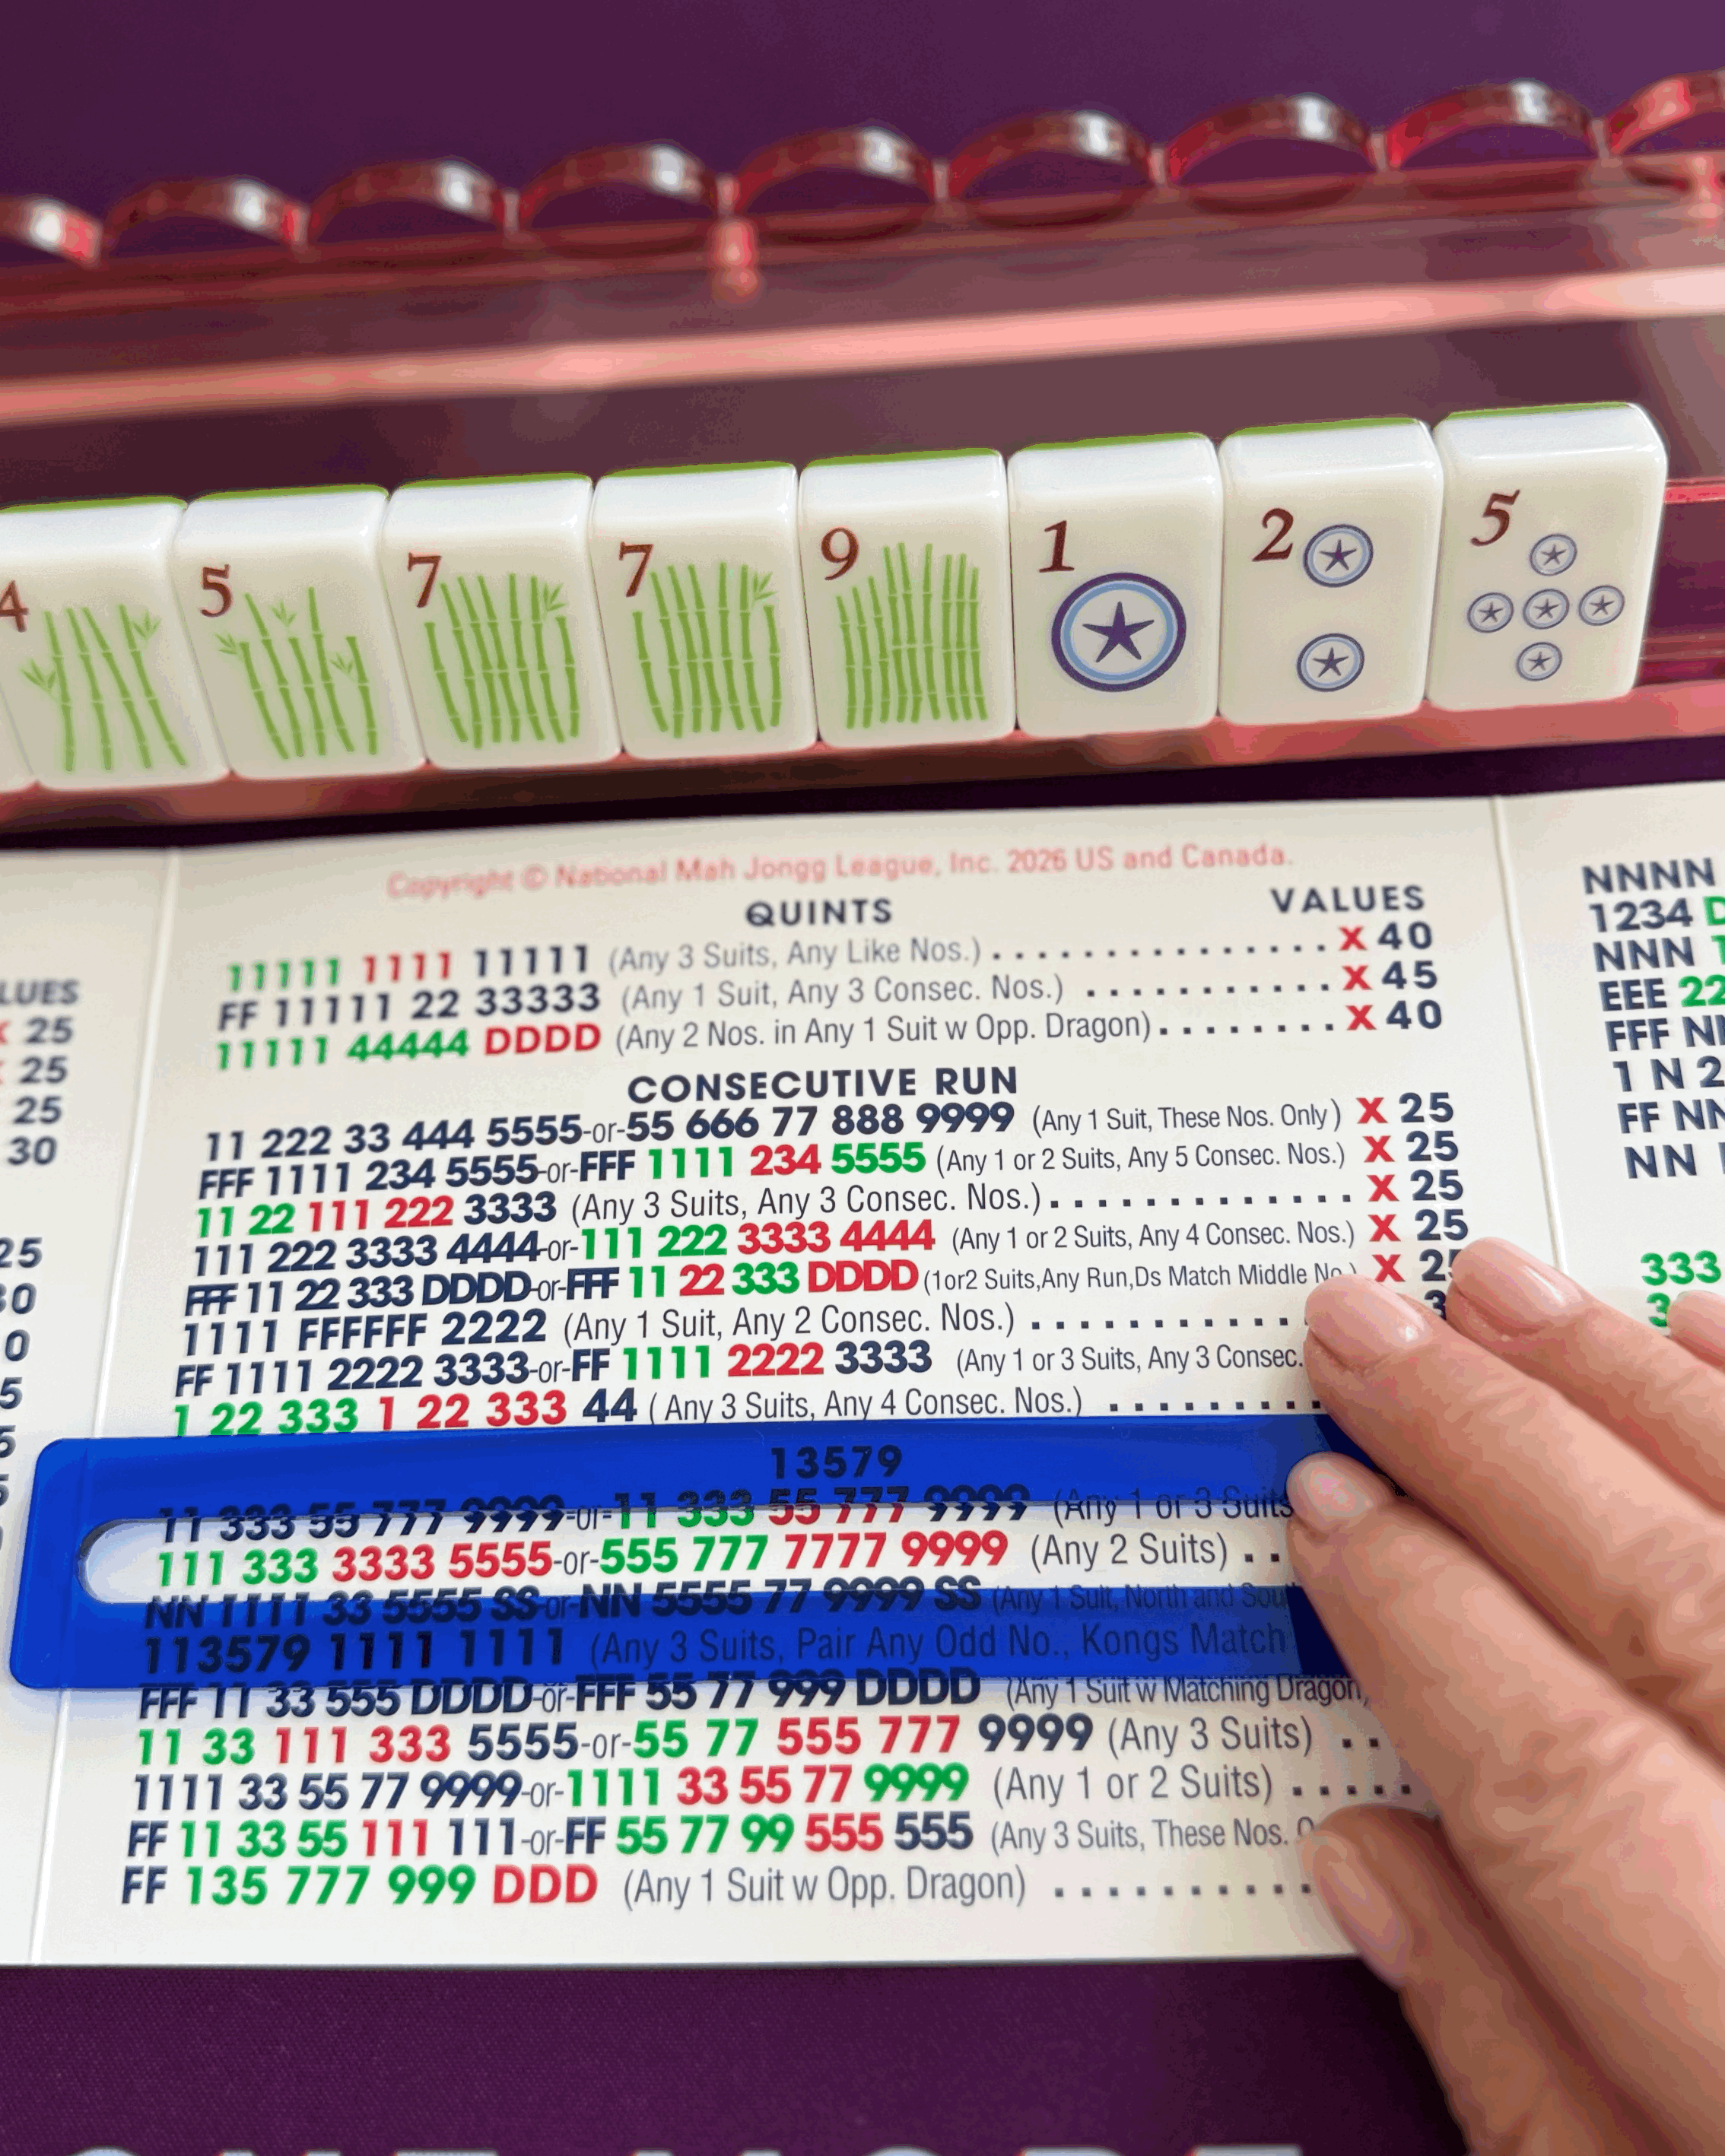 4 5 7 7 9 1 2 5
Copyright © National Mah Jongg League, Inc. 2026 US and Canada.
QUINTS VALUES
11111 1111 11111 (Any 3 Suits, Any Like Nos.) . . . . . . . . . . . . . . . X 40
FF 11111 22 33333 (Any 1 Suit, Any 3 Consec. Nos.) . . . . . . . . . . . X 45
11111 44444 DDDD (Any 2 Nos. in Any 1 Suit w Opp. Dragon) . . . . . . . . X 40
CONSECUTIVE RUN
11 222 33 444 5555-or-55 666 77 888 9999 (Any 1 Suit, These Nos. Only) X 25
FFF 1111 234 5555-or-FFF 1111 234 5555 (Any 1 or 2 Suits, Any 5 Consec. Nos.) X 25
11 22 111 222 3333 (Any 3 Suits, Any 3 Consec. Nos.) . . . . . . . . . . . . . . X 25
111 222 3333 4444-or-111 222 3333 4444 (Any 1 or 2 Suits, Any 4 Consec. Nos.) X 25
FFF 11 22 333 DDDD-or-FFF 11 22 333 DDDD (1or2 Suits,Any Run,Ds Match Middle No.) X 25
1111 FFFFFF 2222 (Any 1 Suit, Any 2 Consec. Nos.) . . . . . . . . . . . 3
FF 1111 2222 3333-or-FF 1111 2222 3333 (Any 1 or 3 Suits, Any 3 Consec.
1 22 333 1 22 333 44 (Any 3 Suits, Any 4 Consec. Nos.) . . . . . . . . .
13579
11 333 55 777 9999-or-11 333 55 777 9999 (Any 1 or 3 Suits
111 333 3333 5555-or-555 777 7777 9999 (Any 2 Suits) . .
NN 1111 33 5555 SS-or-NN 5555 77 9999 SS (Any 1 Suit, North and Sou
113579 1111 1111 (Any 3 Suits, Pair Any Odd No., Kongs Match
FFF 11 33 555 DDDD-or-FFF 55 77 999 DDDD (Any 1 Suit w Matching Dragon)
11 33 111 333 5555-or-55 77 555 777 9999 (Any 3 Suits) . .
1111 33 55 77 9999-or-1111 33 55 77 9999 (Any 1 or 2 Suits) . . . . .
FF 11 33 55 111 111-or-FF 55 77 99 555 555 (Any 3 Suits, These Nos.
FF 135 777 999 DDD (Any 1 Suit w Opp. Dragon) . . . . . . . . . .
LUES
X 25
25
25
30
25
30
0
5
5
NNNN
1234 D
NNN 1
EEE 22
FFF NN
1 N 2
FF NN
NN
333